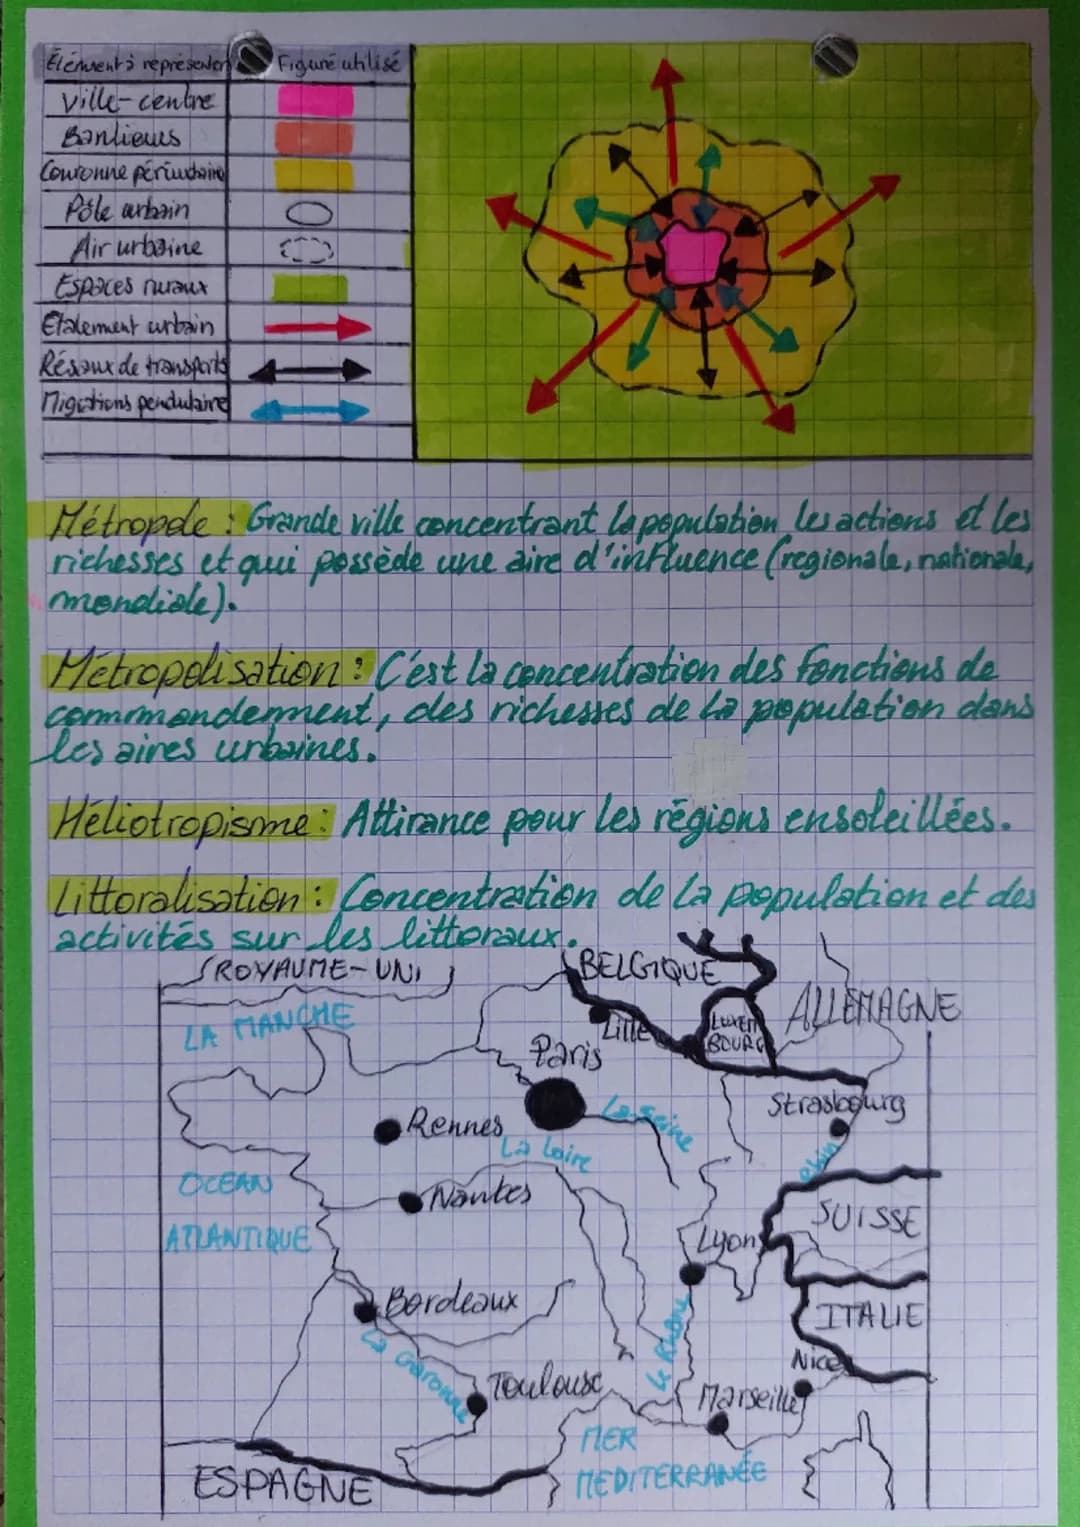 Élément à représenter Figuré utilisé
Ville-centre
Banlieues
Couronne périurbaine
Pôle urbain
Air urbaine
Espaces ruraux
Etalement urbain
Résaux de transports
Migrations pendulaire
Métropole : Grande ville concentrant la population les actions et les
richesses et qui possède une aire d'influence (regionale, nationale,
mondiale).
Métropolisation : C'est la concentration des fonctions de
commmandement, des richesses de la population dans
les aires urbaines.
Héliotropisme : Attirance pour les régions ensoleillées.
Littoralisation : Concentration de la population et des
activités sur les littoraux.
ROYAUME-UNI
BELGIQUE
LA MANCHE
ALLEMAGNE
Lille
LUXEM
BOURG
Paris
Strasbourg
Rennes
La Seine
La Loire
Rhin
OCEAN
Nantes
ATLANTIQUE
SUISSE
Lyon
Bordeaux
ITALIE
La Garonne
Le Rhône
Nice
Toulouse
Marseille
MER
MEDITERRANÉE
ESPAGNE